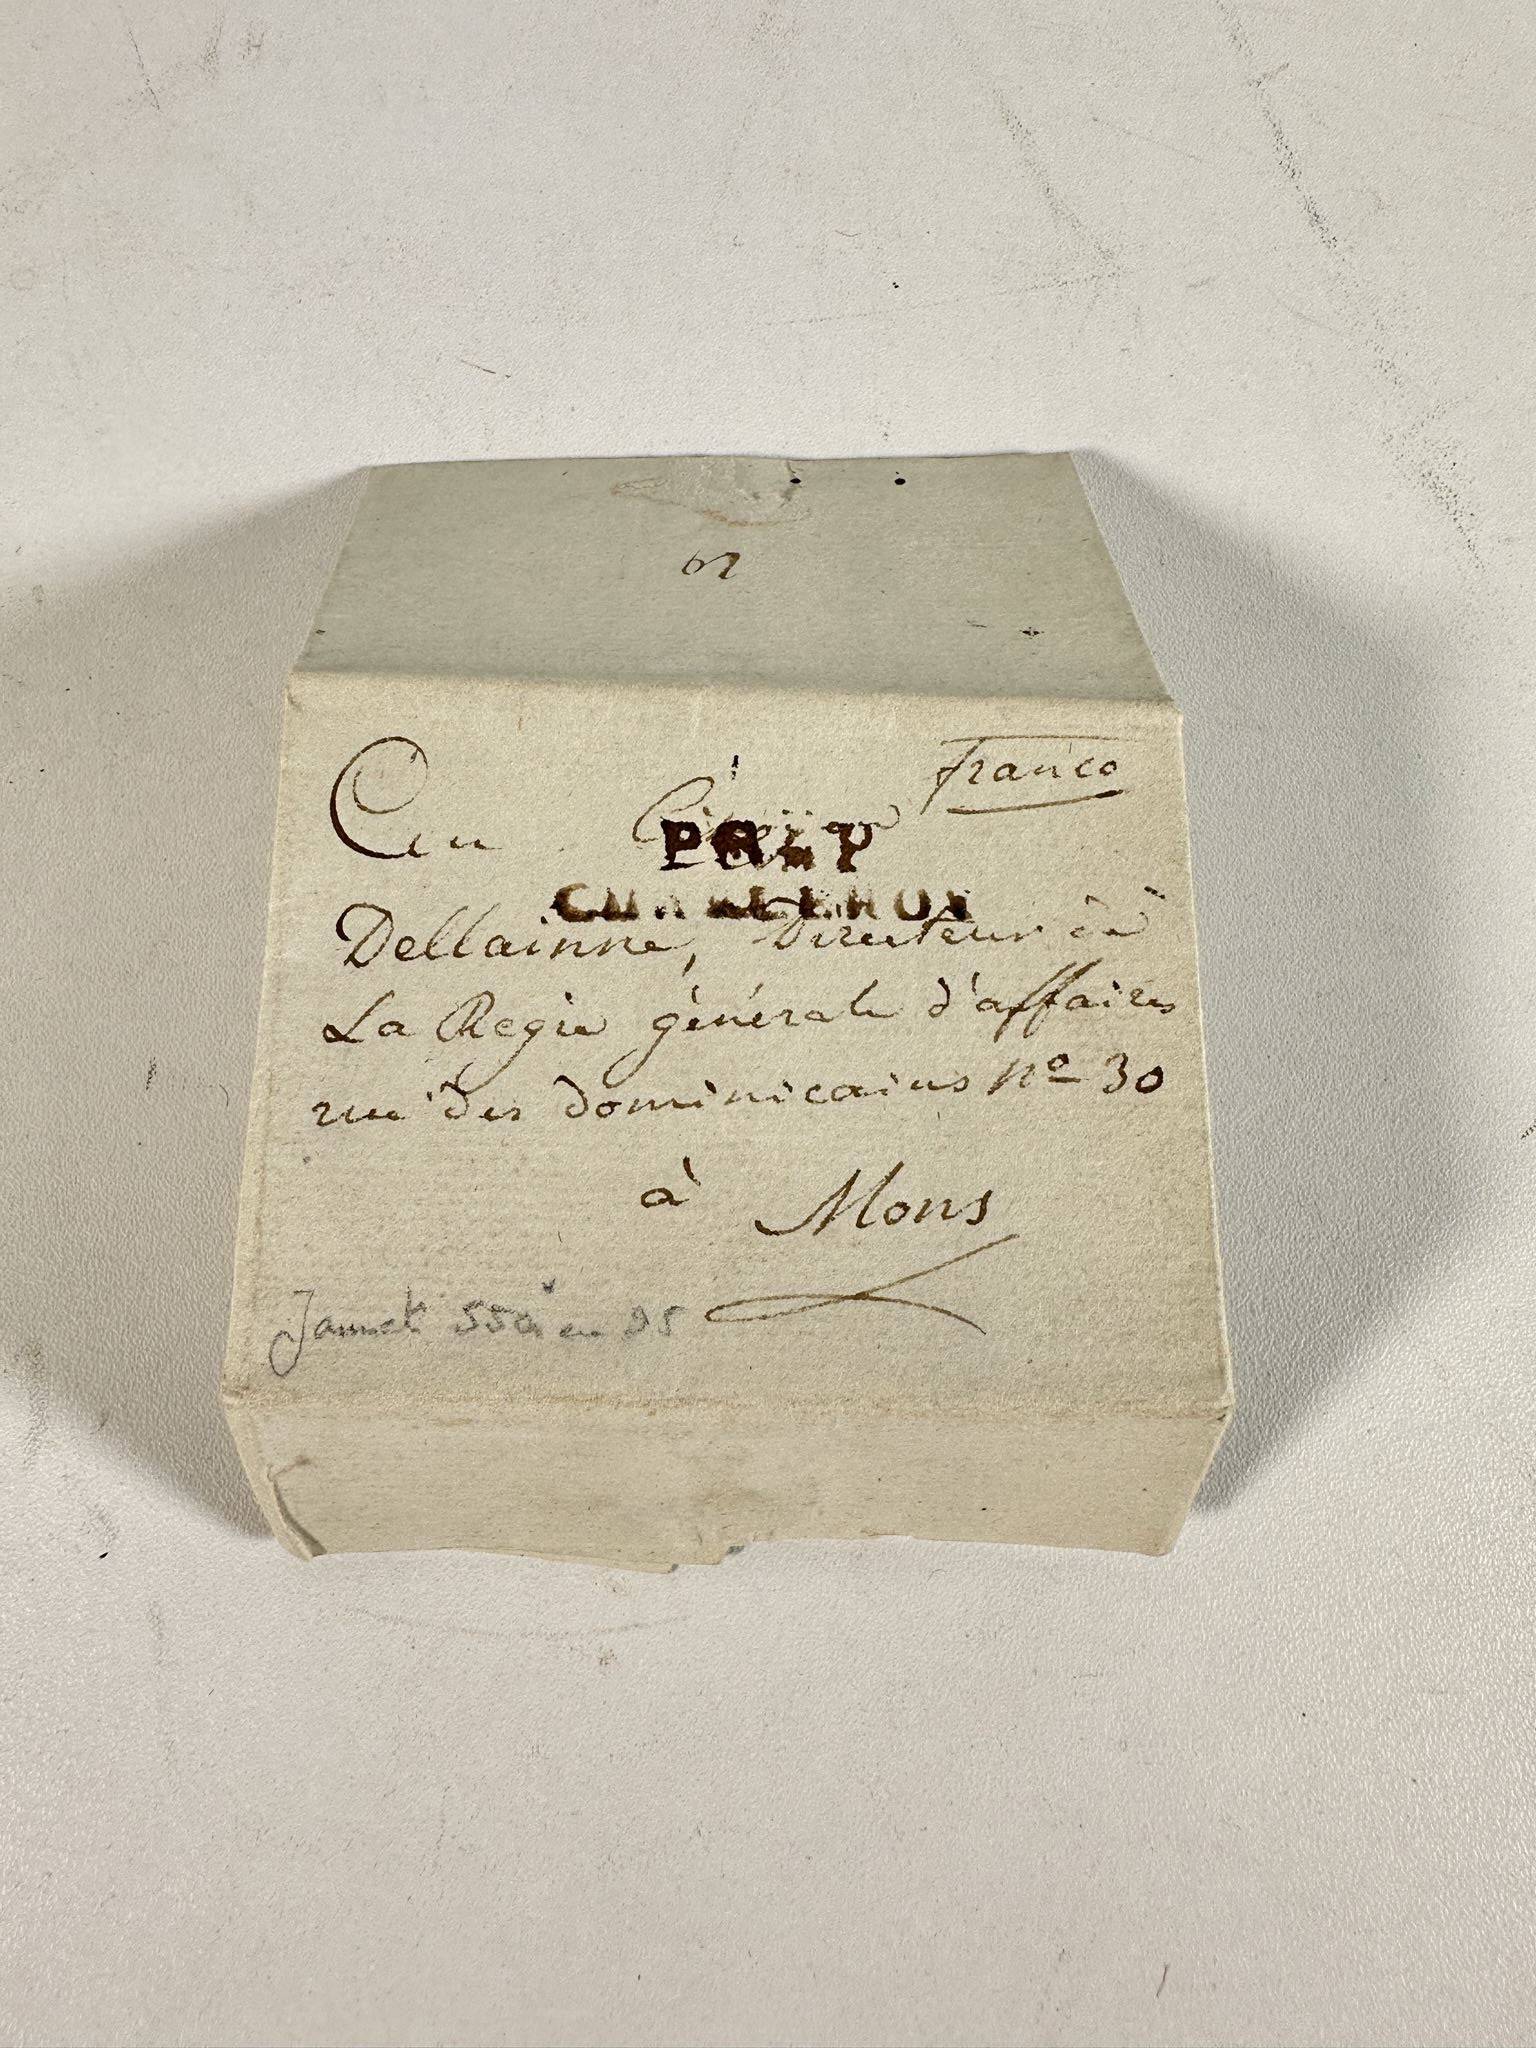 62
Franco
Au Citoyen
P.85.P
CHARLEROY
Dellainne, Directeur de
La Regie générale d'affaires
rue des dominicains nº 30
à Mons
en 95